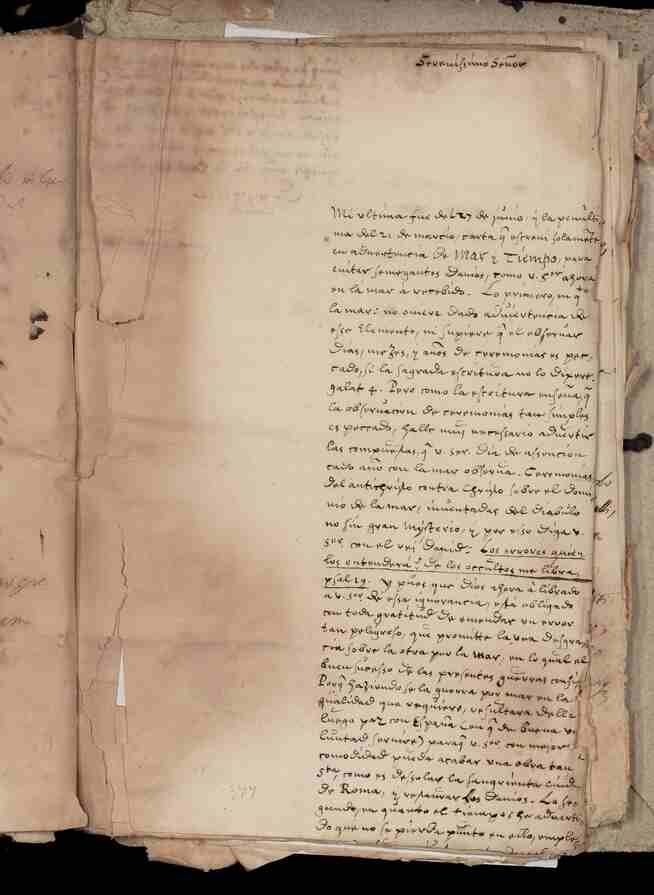 Serenissimo Señor
Mi ultima fue del 27 de junio, y la penulti
ma del 21 de marcio, carta q̃ escreui solamẽte
en aduertencia de Mar y Tiempo, para
euitar semegantes danios, como v. ser. ahora
en la mar à recebido. Lo primero, en q̃
la mar: no ouiera dado aduertencia de
esse Elemento, ni supiera q̃ el obseruar
dias, mezes, y años de ceremonias es pec,
cado, si la sagrada escritura no lo dixera
galat 4. Pero como la escritura enseña, q̃
la obseruacion de ceremonias tan simples
es peccado, halle muy necessario aduertir
las compuestas, q̃ v. ser. dia de assencion
cado año con la mar obserua. Ceremonias
del antichristo contra Christo sobre el domi
nio de la mar, inuentadas del diabulo
no sin gran Mysterio, y por esso diga v.
ser. con el rei Dauid. Los errores quien
los entenderá? de los occultos me libra,
psal 19. Y pues que Dios ahora à librado
a v. ser. de essa ignorancia, està obligado
con toda gratitud de emendar un error
tan peligroso, que promitte la una desgra
cia sobre la otra por la mar, en lo qual el
buen sucesso de las presentes guerras consis
Porq̃ haziendose la guerra por mar en la
qualidad que requiere, resultara della
luego paz con España (con q̃ de buena vo
luntad seruire) paraq̃ v. ser. con mejor
comodidad pueda acabar una obra tan
sta, como es desolar la sangrienta ciuda
de Roma, y restaurar los danios. La se
gundo, en quanto el tiempo: he aduerti
do que no se pierda punto en ello,